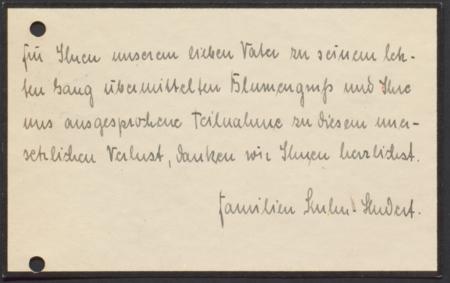 Für Ihnen unserem lieben Vater zu seinem letz-
ten Gang übermittelten Blumengruß und Ihre
uns ausgesprochene Teilnahme zu diesem uner-
setzlichen Verlust, danken wir Ihnen herzlichst.
Familien